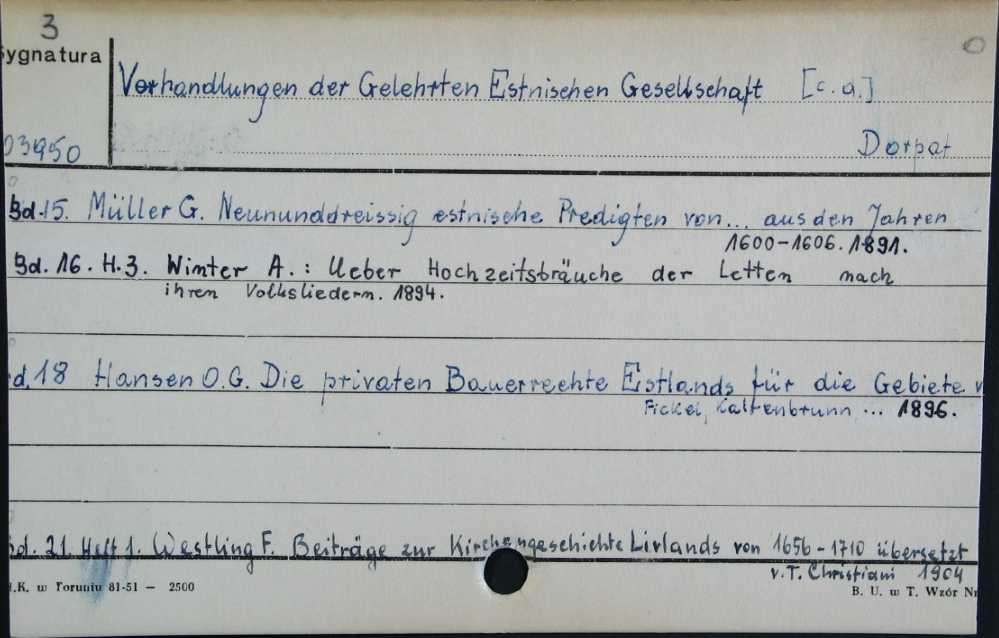 3
Sygnatura
Verhandlungen der Gelehrten Estnischen Gesellschaft [c.a.]
03950
Dorpat
Bd.15. Müller G. Neununddreissig estnische Predigten von... aus den Jahren
1600-1606. 1891.
Bd. 16. H.3. Winter A.: Ueber Hochzeitsbräuche der Letten nach
ihren Volksliedern. 1894.
d.18 Hansen O.G. Die privaten Bauerrechte Estlands für die Gebiete v
Fickel, Kaltenbrunn ... 1896.
Bd. 21. Heft 1. Westling F. Beiträge zur Kirchengeschichte Livlands von 1656-1710 übersetzt
v. T. Christiani 1904
.K. w Toruniu 81-51 — 2500
B. U. w T. Wzór Nr